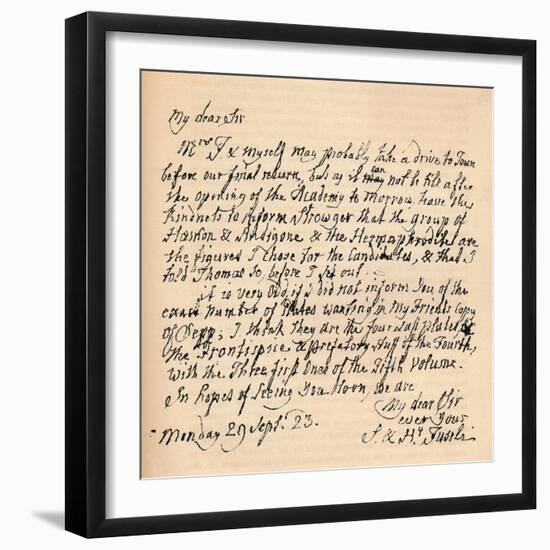 My dear Sir
Mrs F & myself may probably take a drive to Town
before our final return, but as it can may not be till after
the opening of the Academy to Morrow, have the
kindness to inform Strowger that the group of
Haemon & Antigone & the Hermaphrodite are
the figures I chose for the Candidates, & that I
told Thomas so, before I set out.
it is very odd if I did not inform You of the
exact number of Plates wanting in My Friends Copy
of Sepp; I think they are the four last plates
the Frontispice & prefatory Stuff of the Fourth,
with the Three first Ones of the Fifth Volume.
In hopes of Seeing You Soon, we are
My dear Sir
ever Yours
S. & Hy. Fuseli
Monday 29 Sept. 23.